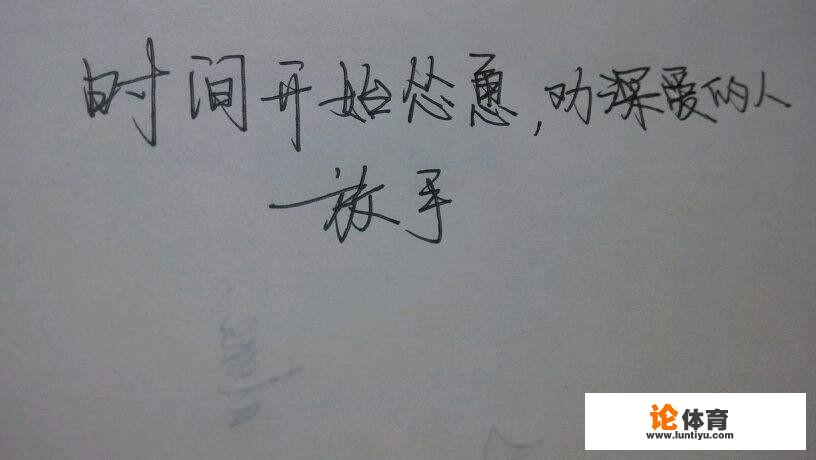 时间开始怂恿,劝深爱的人
一放手
论体育
www.luntiyu.com